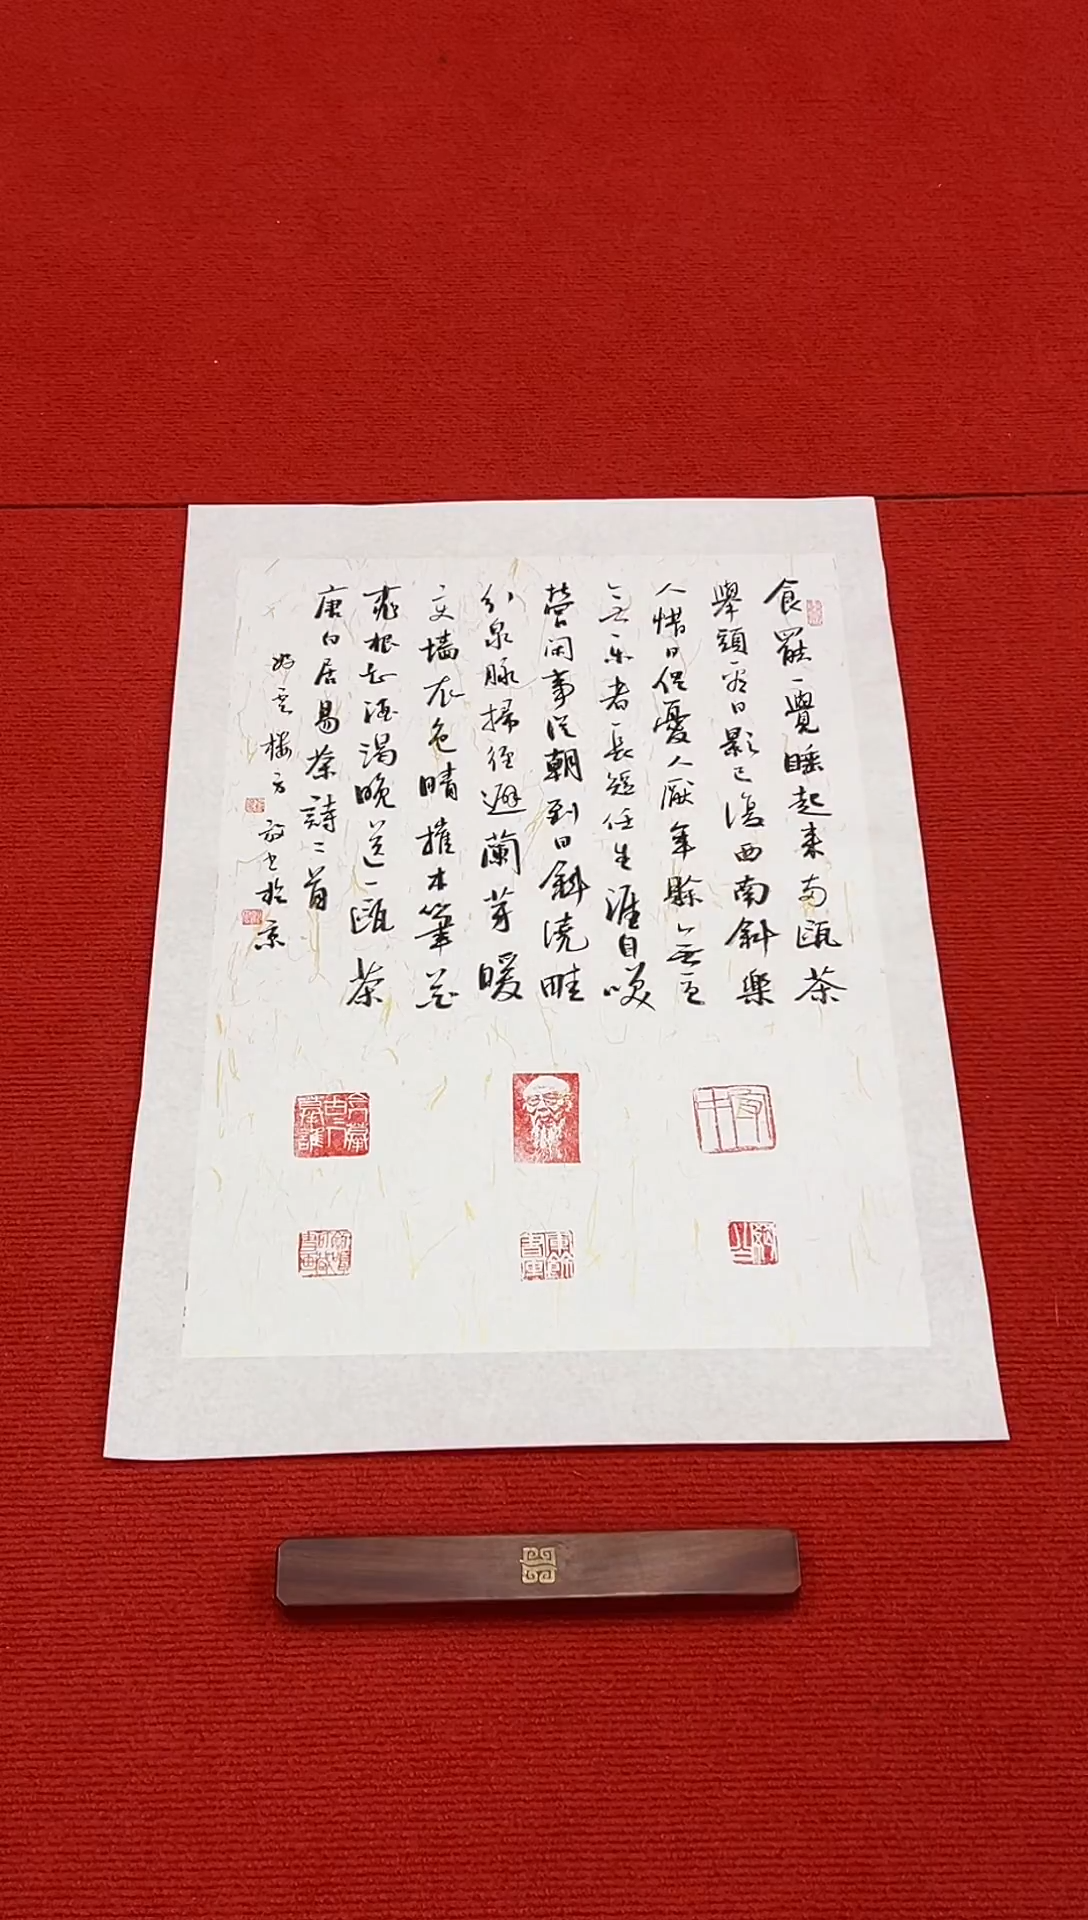 食罷一覺睡起來兩甌茶
舉頭看日影已復西南斜樂
人惜日促憂人厭年賒無憂
無樂者長短任生涯自咲
營闲事從朝到日斜澆畦
引泉脉掃徑避蘭芽暖
变墙衣色晴摧木筆花
桃根知酒渴晚送一甌茶
唐白居易茶詩二首
雲樓方書於京